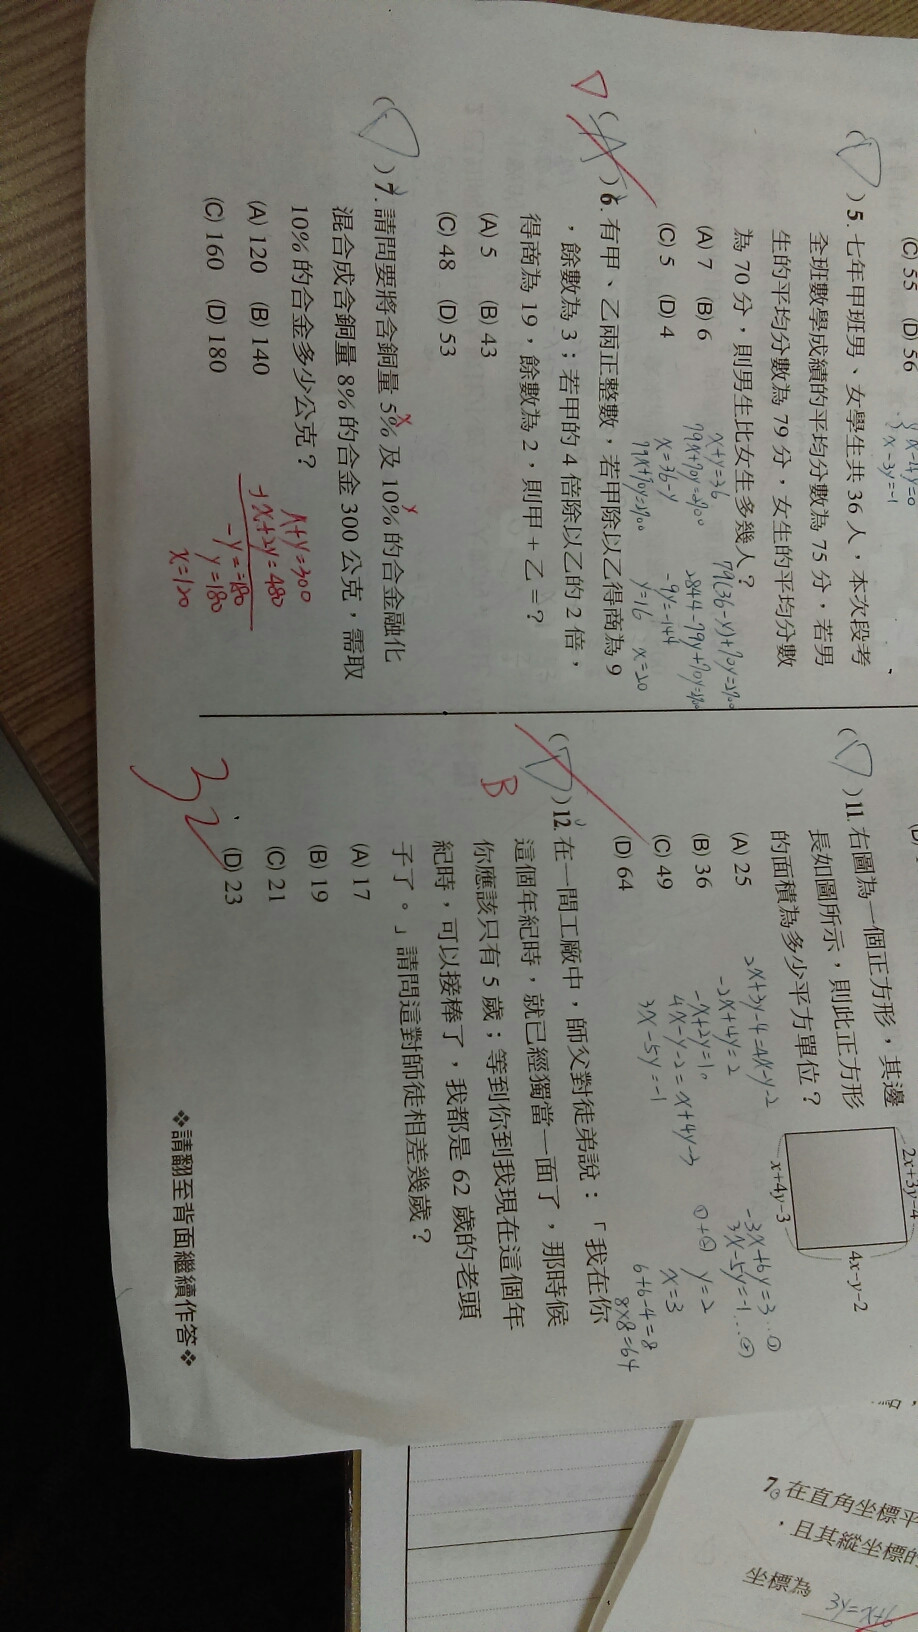 (C) 55 (D) 56
x-4y=0
3x-3y=-1
(D) 5. 七年甲班男、女學生共 36 人，本次段考
全班數學成績的平均分數為 75 分，若男
生的平均分數為 79 分，女生的平均分數
為 70 分，則男生比女生多幾人？
(A) 7 (B) 6
(C) 5 (D) 4
x+y=36
79x+70y=2700
x=36-y
79x+70y=2700
79(36-y)+70y=2700
2844-79y+70y=2700
-9y=-144
y=16 x=20
D
(A) 6. 有甲、乙兩正整數，若甲除以乙得商為 9
，餘數為 3；若甲的 4 倍除以乙的 2 倍，
得商為 19，餘數為 2，則甲＋乙＝？
(A) 5 (B) 43
(C) 48 (D) 53
(D) 7. 請問要將含銅量 5% 及 10% 的合金融化
x y
混合成含銅量 8% 的合金 300 公克，需取
10% 的合金多少公克？
(A) 120 (B) 140
(C) 160 (D) 180
x+y=300
-) x+2y=480
-y=-180
y=180
x=120
(D) 11. 右圖為一個正方形，其邊
長如圖所示，則此正方形
的面積為多少平方單位？
(A) 25
(B) 36
(C) 49
(D) 64
2x+3y-4
4x-y-2
x+4y-3
2x+3y-4=4x-y-2
-2x+4y=2
-x+2y=1
4x-y-2=x+4y-3
3x-5y=-1
-3x+6y=3…①
3x-5y=-1…②
①+② y=2
x=3
6+6-4=8
8×8=64
(D) 12. 在一間工廠中，師父對徒弟說：「我在你
B
這個年紀時，就已經獨當一面了，那時候
你應該只有 5 歲；等到你到我現在這個年
紀時，可以接棒了，我都是 62 歲的老頭
子了。」請問這對師徒相差幾歲？
(A) 17
(B) 19
(C) 21
(D) 23
32
❖請翻至背面繼續作答❖
7. 在直角坐標平
，且其縱坐標的
坐標為